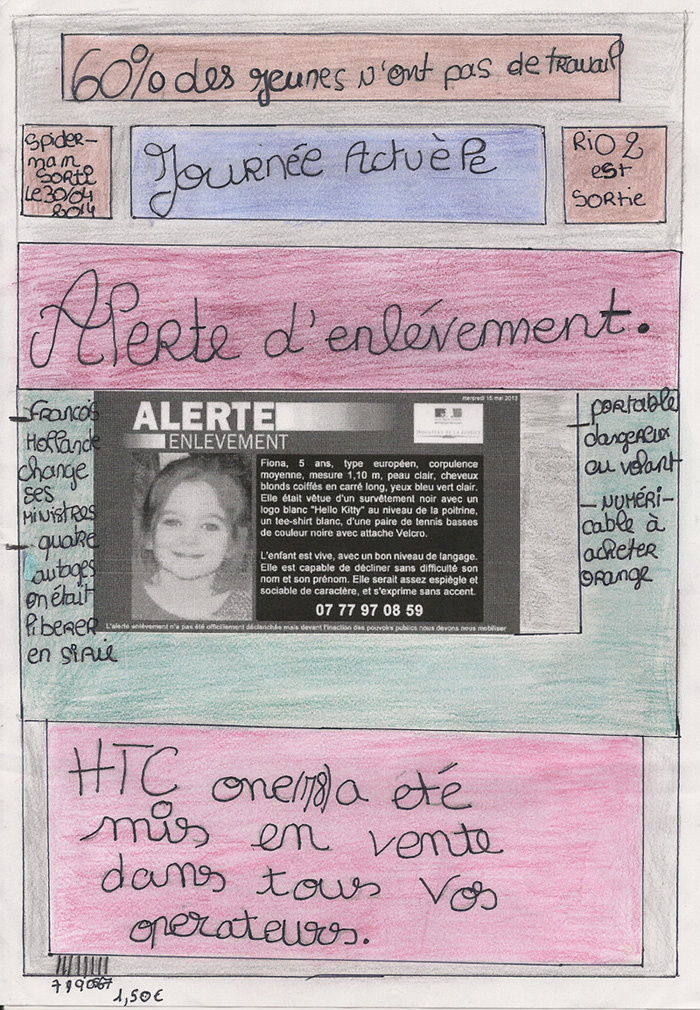 60% des jeunes n'ont pas de travail
Spider-
man
sortie
le 30/04
2014
Journée Actuèle
RiO 2
est
sortie
Alerte d'enlévement.
- Francois
Hollande
change
ses
ministres
- quatre
autages
on était
liberer
en sirie
mercredi 15 mai 2013
ALERTE
ENLEVEMENT
Fiona, 5 ans, type européen, corpulence
moyenne, mesure 1,10 m, peau clair, cheveux
blonds coiffés en carré long, yeux bleu vert clair.
Elle était vêtue d'un survêtement noir avec un
logo blanc "Hello Kitty" au niveau de la poitrine,
un tee-shirt blanc, d'une paire de tennis basses
de couleur noire avec attache Velcro.
L'enfant est vive, avec un bon niveau de langage.
Elle est capable de décliner sans difficulté son
nom et son prénom. Elle serait assez espiègle et
sociable de caractère, et s'exprime sans accent.
07 77 97 08 59
L'alerte enlèvement n'a pas été officiellement déclanchée mais devant l'inaction des pouvoirs publics nous devons nous mobiliser
- portable
dangereux
au volant
- numéri-
cable à
acheter
orange
HTC one(M8) a été
mis en vente
dans tous vos
operateurs.
799067
1,50€